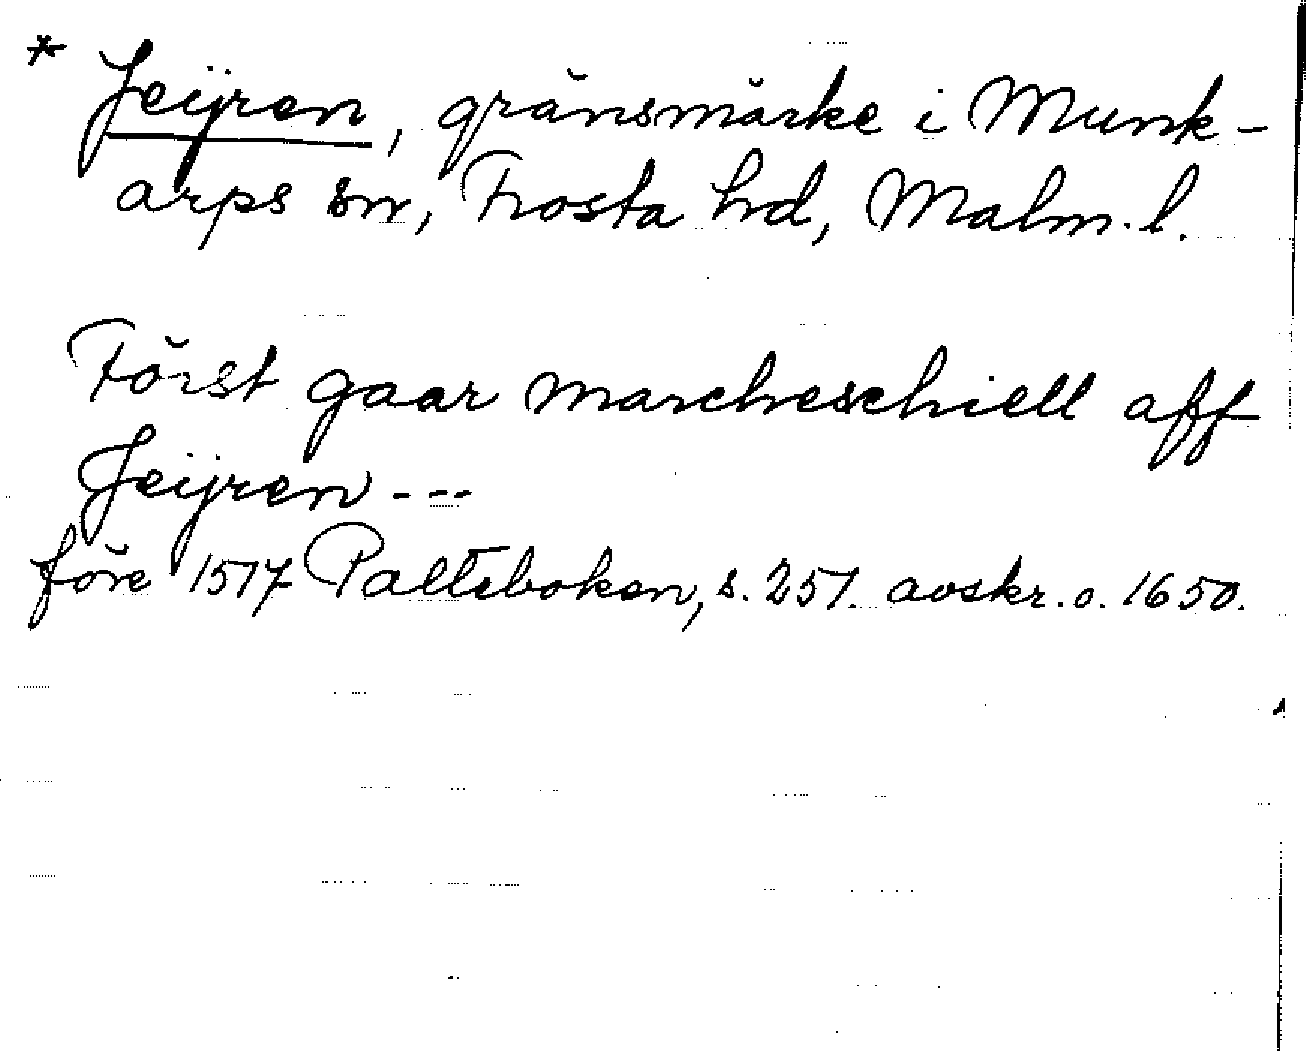 * Jeijren, gränsmärke i Munk-
arps sn, Frosta hd, Malm. l.
Först gaar marcheschiell aff
Jeijren ---
före 1517 Palteboken, s. 251. avskr. o. 1650.